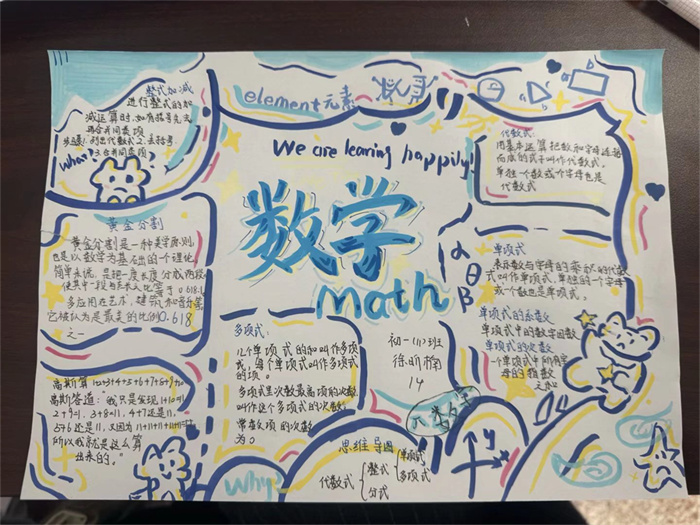 整式加减
进行整式的加
减运算时,如有括号先去
再合并同类项
步骤:1.列出代数式2.去括号
3.合并同类项
What?
element元素
a
b
a
b
We are learing happily!
数学
math
α
θ
β
代数式:
用基本运算把数和字母连接
而成的式子叫作代数式。
单独一个数或个字母也是
代数式
黄金分割
黄金分割是一种美学原则,
也是以数学为基础的个理论
简单来说,是把一度长度分成两段
0.618.
多应用在艺术,建筑和音乐等
它被认为是最美的比例0.618
之一
单项式:
表示数与字母的乘积的代数
式叫作单项式,单独的一个字母
或一个数也是单项式。
单项式的系数
单项式中的数字因数
单项式的次数
一个单项式中所有字
母的指数
之和
多项式:
几个单项式的和叫作多项
式,每个单项式叫作多项式
的项。
多项式里次数最高项的次数,
叫作这个多项式的次数;
常数项的次数
为0
初一(11)班
14
高斯算1+2+3+4+5+6+7+8+9+10
高斯答道:"我只是发现1+10=11
2+9=11.3+8=11.4+7还是11,
5+6还是11,又因为11+11+11+11+11=55
所以我就是这么算
出来的。"
π
数学
y
x
Why
思维导图
代数式
整式
分式
单项式
多项式